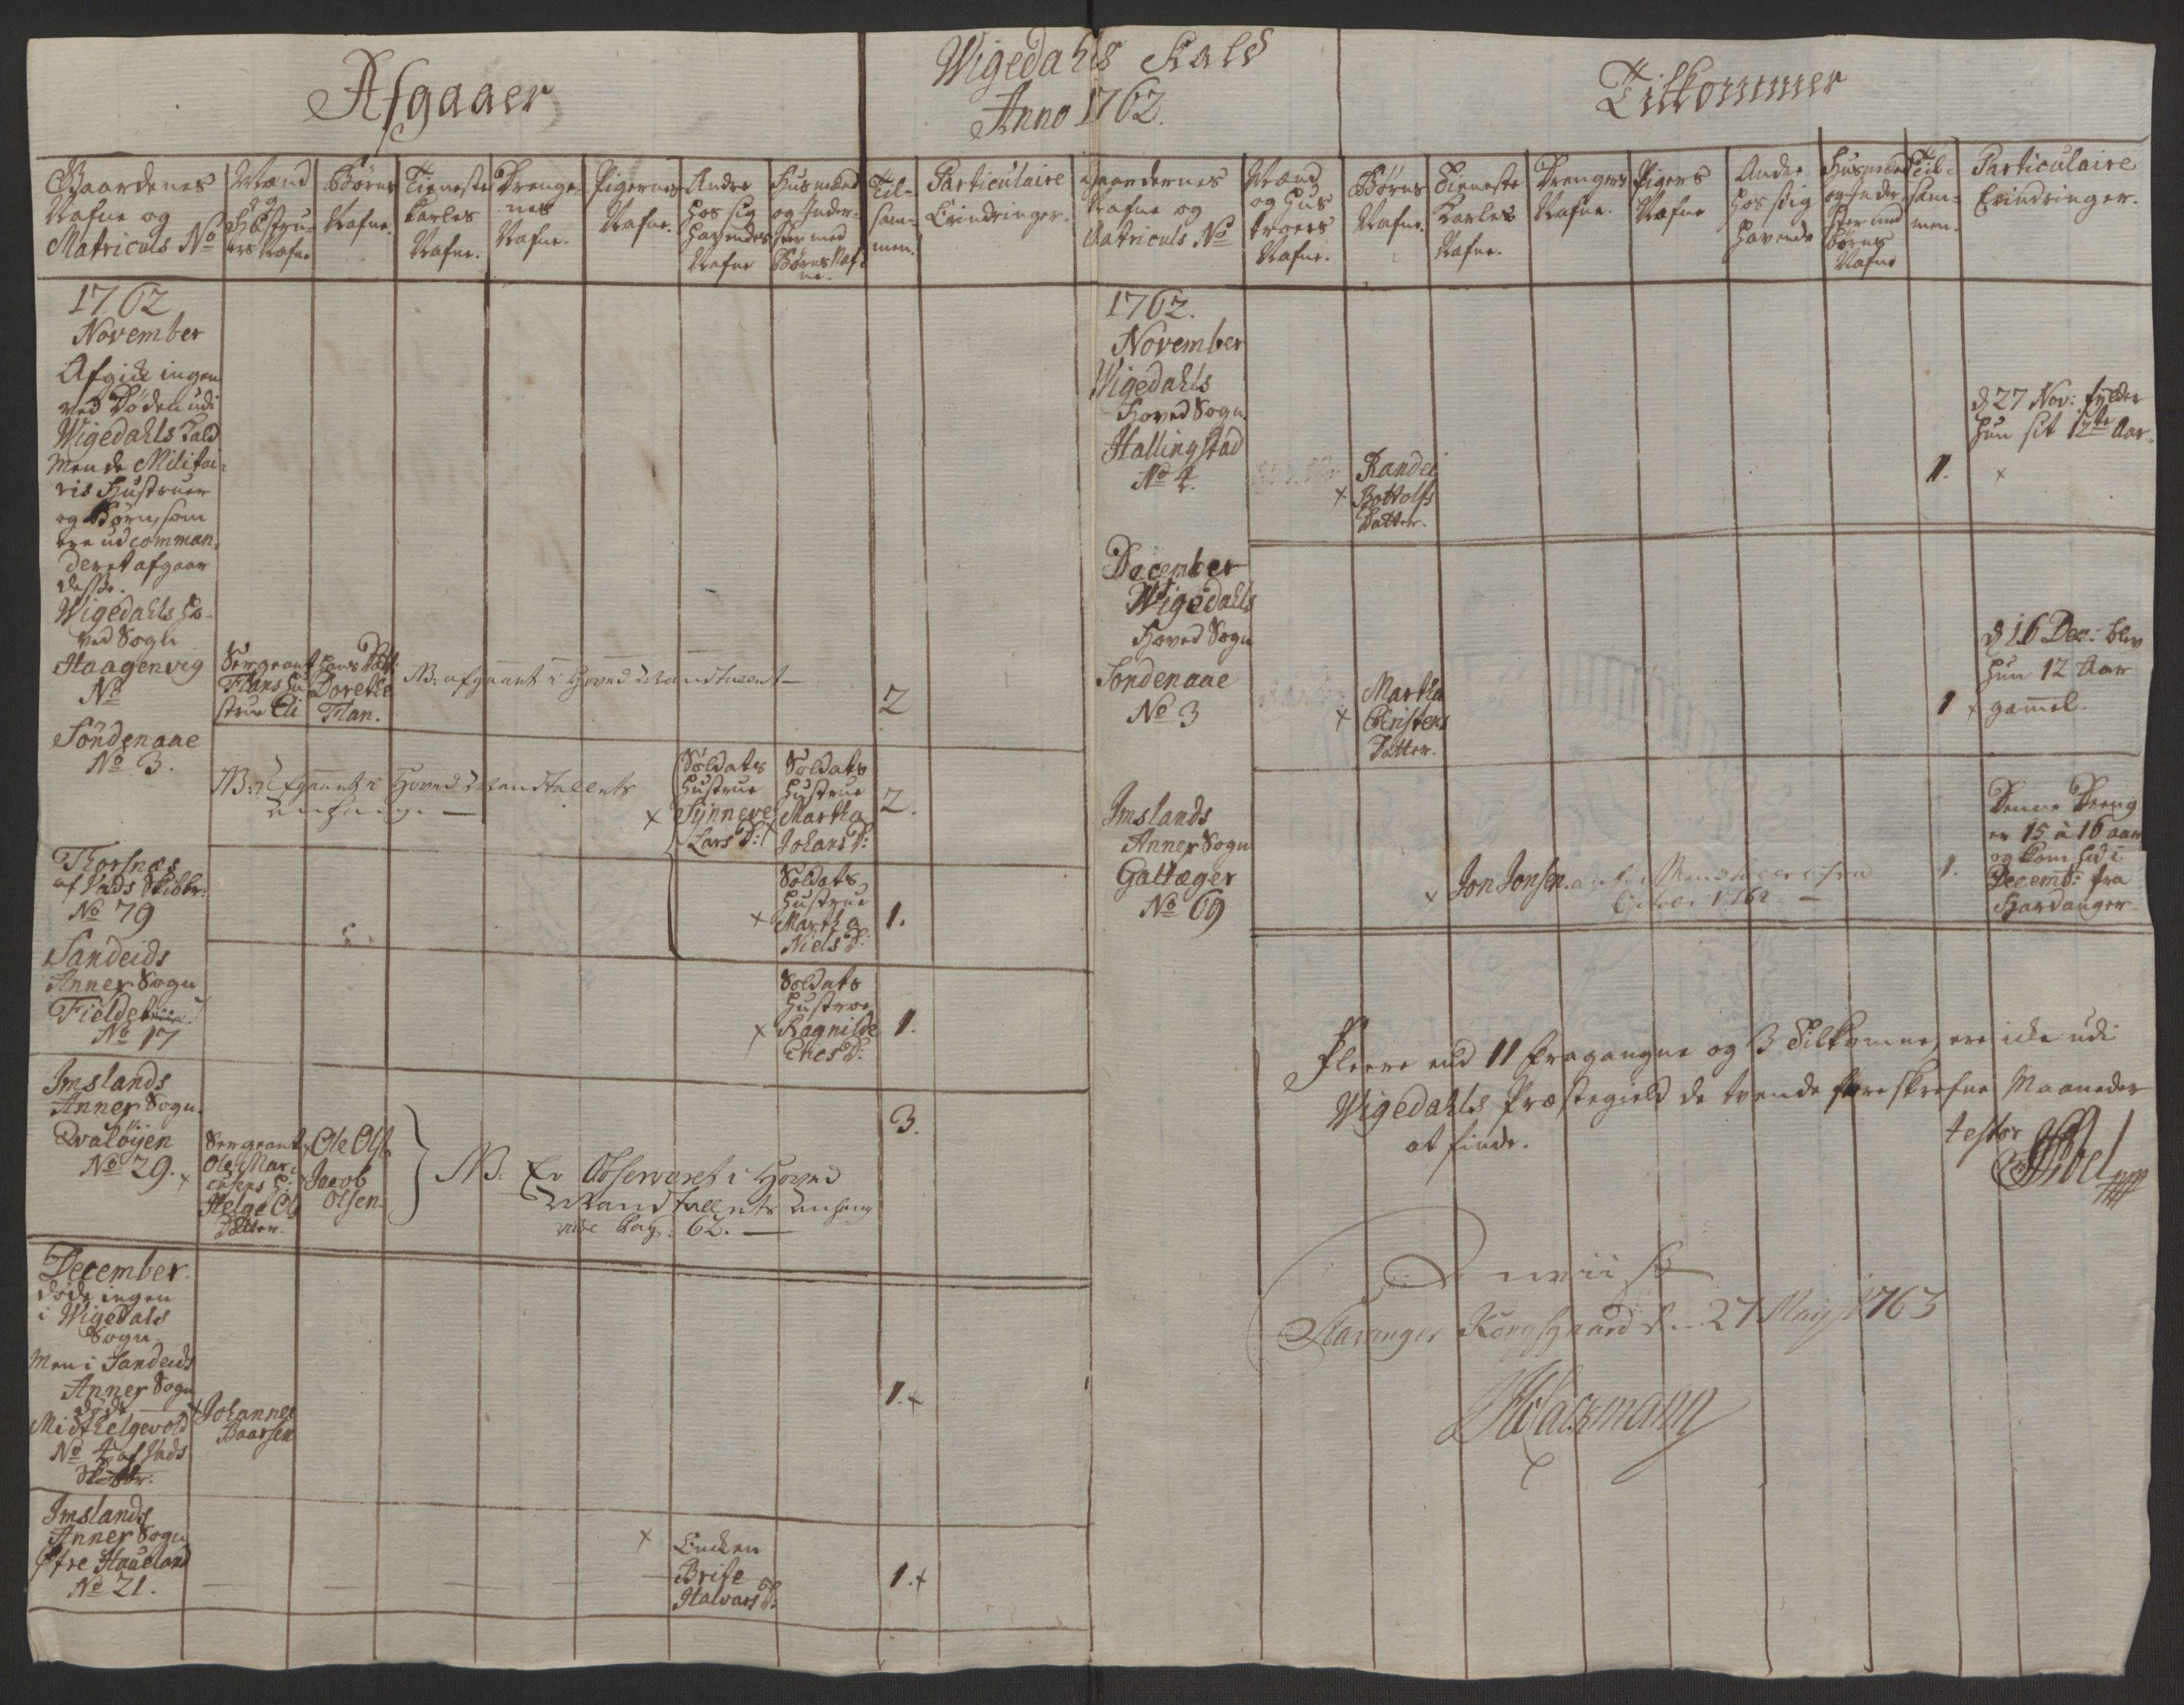 Wigedahls Kald
Anno 1762.
Afgaaer
Gaardenes
Nafne og
Matriculs No
Mænd
og
Hustru-
ers Nafne
Børns
Nafne.
Tieneste
Karles
Nafne.
Drenge-
nes
Nafne.
Pigernes
Nafne.
Andre
hos sig
havendes
Nafne
Husmænd
og Inder-
ster med
Børns Naf-
ne.
Til-
sam-
men.
Particulaire
Erindringer.
1762
November
Afgik ingen
ved Døden udi
Wigedahls Kald
Men de Militai-
ris Hustruer
og Børn, som
ere udcomman-
deret afgaar
disse.
Wigedahls Ho-
ved Sogn
Haagenvig
No
Sergeant
Flans Hu-
strue Eli
Hans Datt:
Dorethe
Flan.
NB: afgaaet i Hoved Mandtallet
2
Söndenaae
No 3.
NB: Afgaaet i Hoved Mandtallets
Anhang.
Soldats
Hustrue
x Synneve
Lars D:
Soldats
Hustrue
Martha
Johans D:
2.
Thorsnæs
af Vads Skibbr:
No 79
Soldats
Hustrue
x Martha
Niels D:
1.
Sandeids
Anner Sogn
Fielde
No 17
Soldats
Hustroe
x Ragnilde
D:
1.
Imslands
Anner Sogn.
Qvaløyen
No 29. x
Sergeant
Ole Mari
H:
Helge Ols
Datter.
Ole Ols:
Jacob
Olsen.
NB: Er Observeret i Hoved
Mandtallets Anhang
vide Pag: 62.
3.
December.
døde ingen
i Wigedals
Sogn.
Men i Sandeids
Anner Sogn
døde
Midthelgevold
No 4 af Vads
Skibbr:
x Johannes
Baarsen
1. x
Imslands
Anner Sogn
Øfre Haueland
No 21.
x Enken
Brite
Halvars D:
1. x
Tilkommer
Gaardernes
Nafne og
Matriculs No
Mænd
og Hus
troers
Nafne.
Børns
Nafne.
Tieneste
Karles
Nafne.
Drengers
Nafne.
Pigers
Nafne
Andre
hos sig
havende
Husmænd
og Inder
ster med
Børns
Nafne
Til-
sam-
men.
Particulaire
Erindringer.
1762.
November
Wigedahls
Hoved Sogn
Hallingstad
No 4.
Randei
x Bottolfs
Datter.
1.
d 27 Nov: fylder
hun sit 12te Aar.
x
December
Wigedahls
Hoved Sogn
Söndenaae
No 3
Martha
x Christens
Datter.
1 x
d 16 Dec: blev
hun 12 Aar
gammel.
Imslands
Anner Sogn
Gattæger
No 69
x Jon Jonsen.
1762
1.
Denne Dreng
er 15 à 16 aar
og kom hid i
Decemb: fra
Hardanger.
Fleere end 11 fragangne og 3 Tilkomne, ere icke udi
Wigedahls Præstegield de tvende foreskrefne Maaneder
at finde.
testor
Stavanger Kongsgaard d. 27 May 1763